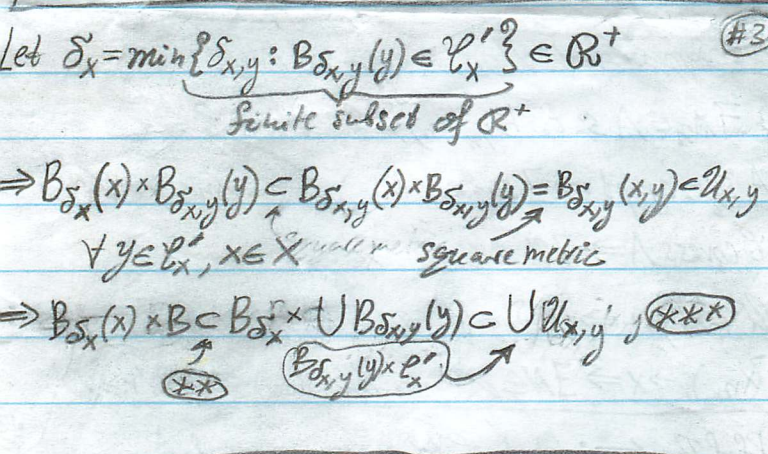 #3
Let δ_x = min{δ_{x,y} : B_{δ_{x,y}}(y) ∈ 𝒞'_x} ∈ ℝ⁺
finite subset of ℝ⁺
⇒ B_{δ_x}(x) × B_{δ_{x,y}}(y) ⊂ B_{δ_{x,y}}(x) × B_{δ_{x,y}}(y) = B_{δ_{x,y}}(x,y) ⊂ 𝒰_{x,y}
∀ y ∈ 𝒞'_x, x ∈ X square metric
⇒ B_{δ_x}(x) × B ⊂ B_{δ_x} × ∪ B_{δ_{x,y}}(y) ⊂ ∪ 𝒰_{x,y}, ***
** B_{δ_{x,y}}(y) × 𝒞'_x